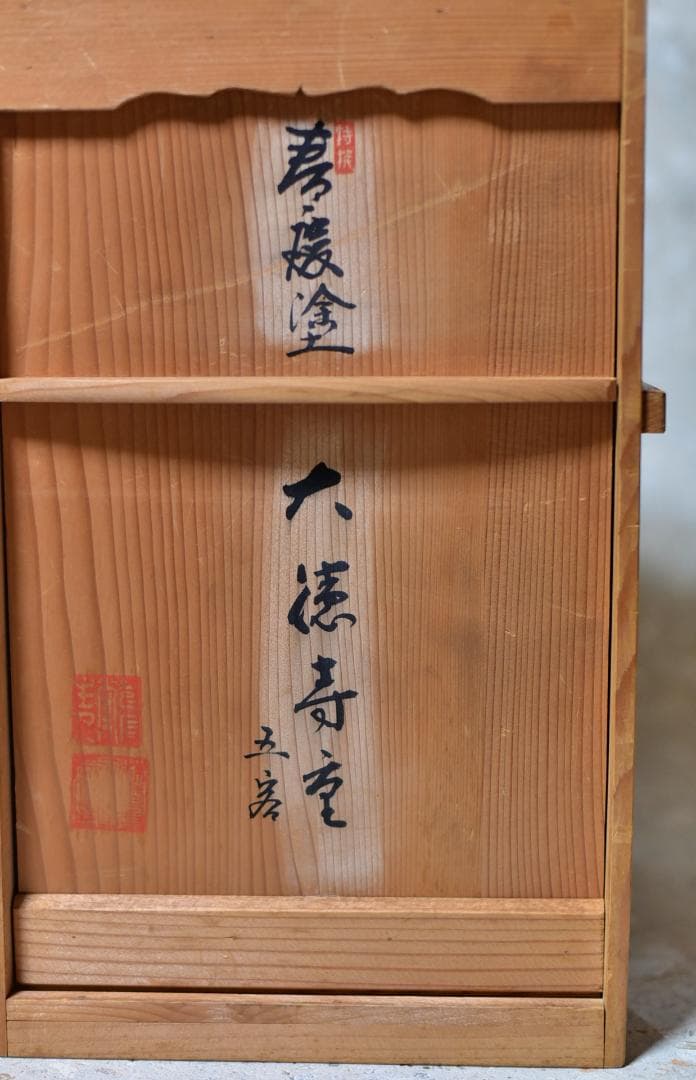 特撰
春慶塗
大徳寺重
五客